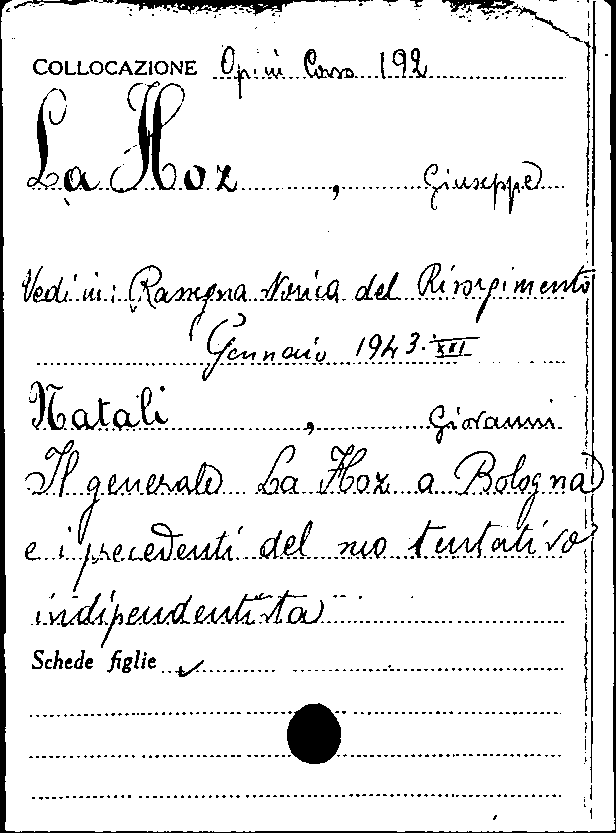 COLLOCAZIONE Op. in Cons 192
La Hoz, Giuseppe
Vedi in: Rassegna storica del Risorgimento
Gennaio 1943. XXI
Natali, Giovanni
Il generale La Hoz a Bologna
e i precedenti del suo tentativo
indipendentista
Schede figlie